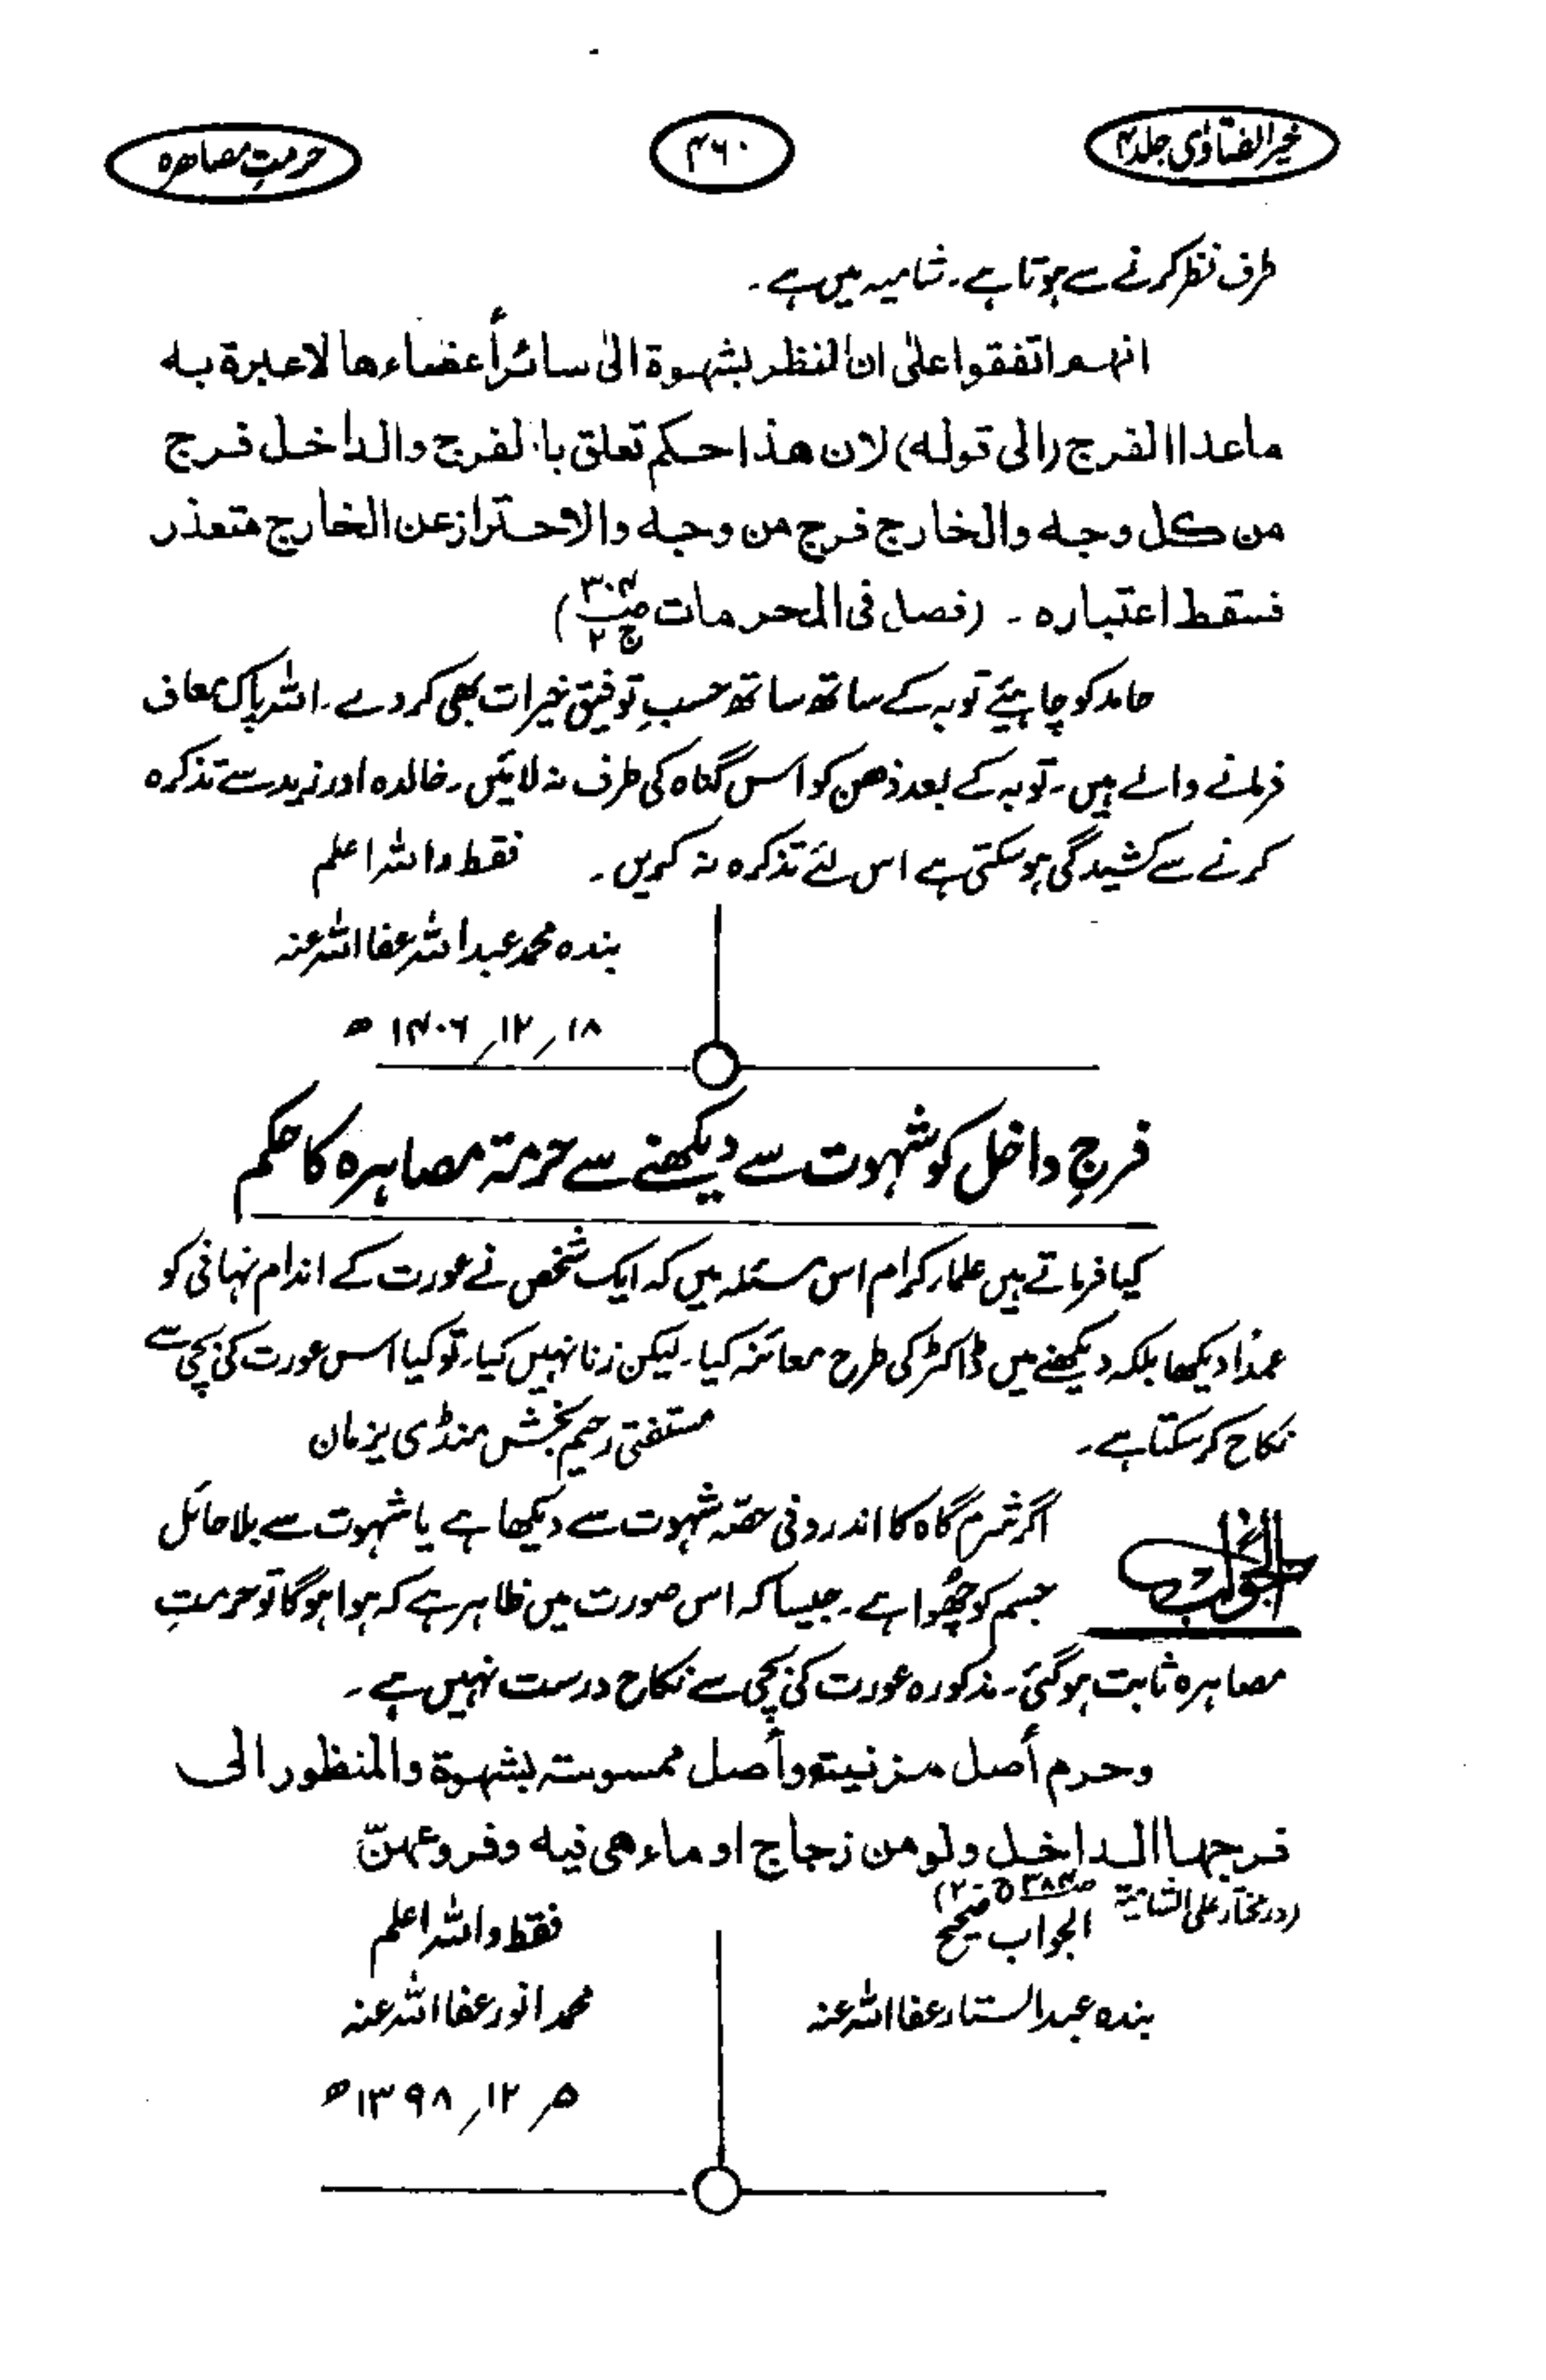 خیر الفتاوٰی جلد ۴
۴۶۰
حرمتِ مصاھرہ
طرف نظر کرنے سے ہوتا ہے۔ شامیہ میں ہے۔
انهم اتفقوا على ان النظر بشهوة الى سائر أعضاءها لا عبرة به
ماعدا الفرج (الى قوله) لان هذا حكم تعلق بالفرج والداخل فرج
من كل وجه والخارج فرج من وجه والاحتراز عن الخارج متعذر
فسقط اعتباره ۔ (فصل فى المحرمات ص۳۰۴ ج۲)
حامد کو چاہئیے توبہ کے ساتھ ساتھ حسبِ توفیق خیرات بھی کر دے۔ اللہ پاک معاف
فرمانے والے ہیں۔ توبہ کے بعد ذھن کو اس گناہ کی طرف نہ لائیں۔ خالدہ اور زید سے تذکرہ
کرنے سے کشیدگی ہو سکتی ہے اس لئے تذکرہ نہ کریں۔ فقط واللہ اعلم
بندہ محمد عبداللہ عفا اللہ عنہ
۱۸؍ ۱۲؍ ۱۴۰۶ ھ
فرجِ داخل کو شہوت سے دیکھنے سے حرمۃ مصاہرہ کا حکم
کیا فرماتے ہیں علماء کرام اس مسئلہ میں کہ ایک شخص نے عورت کے اندام نہانی کو
عمداً دیکھا بلکہ دیکھنے میں ڈاکٹر کی طرح معائنہ کیا۔ لیکن زنا نہیں کیا۔ تو کیا اس عورت کی بچی سے
نکاح کر سکتا ہے۔ مستفتی رحیم بخش منڈی یزمان
الجواب
اگر شرم گاہ کا اندرونی حصّہ شہوت سے دیکھا ہے یا شہوت سے بلا حائل
جسم کو چُھوا ہے۔ جیسا کہ اس صورت میں ظاہر ہے کہ ہوا ہو گا تو حرمتِ
مصاہرہ ثابت ہو گئی۔ مذکورہ عورت کی بچی سے نکاح درست نہیں ہے۔
وحرم أصل مزنيته وأصل ممسوسته بشهوة والمنظور الى
فرجها الداخل ولو من زجاج او ماء هى فيه وفروعهنّ
(درمختار علی الشامیۃ ص۳۸۴ ج۲)
الجواب صحیح
فقط واللہ اعلم
بندہ عبدالستار عفا اللہ عنہ
محمد انور عفا اللہ عنہ
۵؍ ۱۲؍ ۱۳۹۸ھ